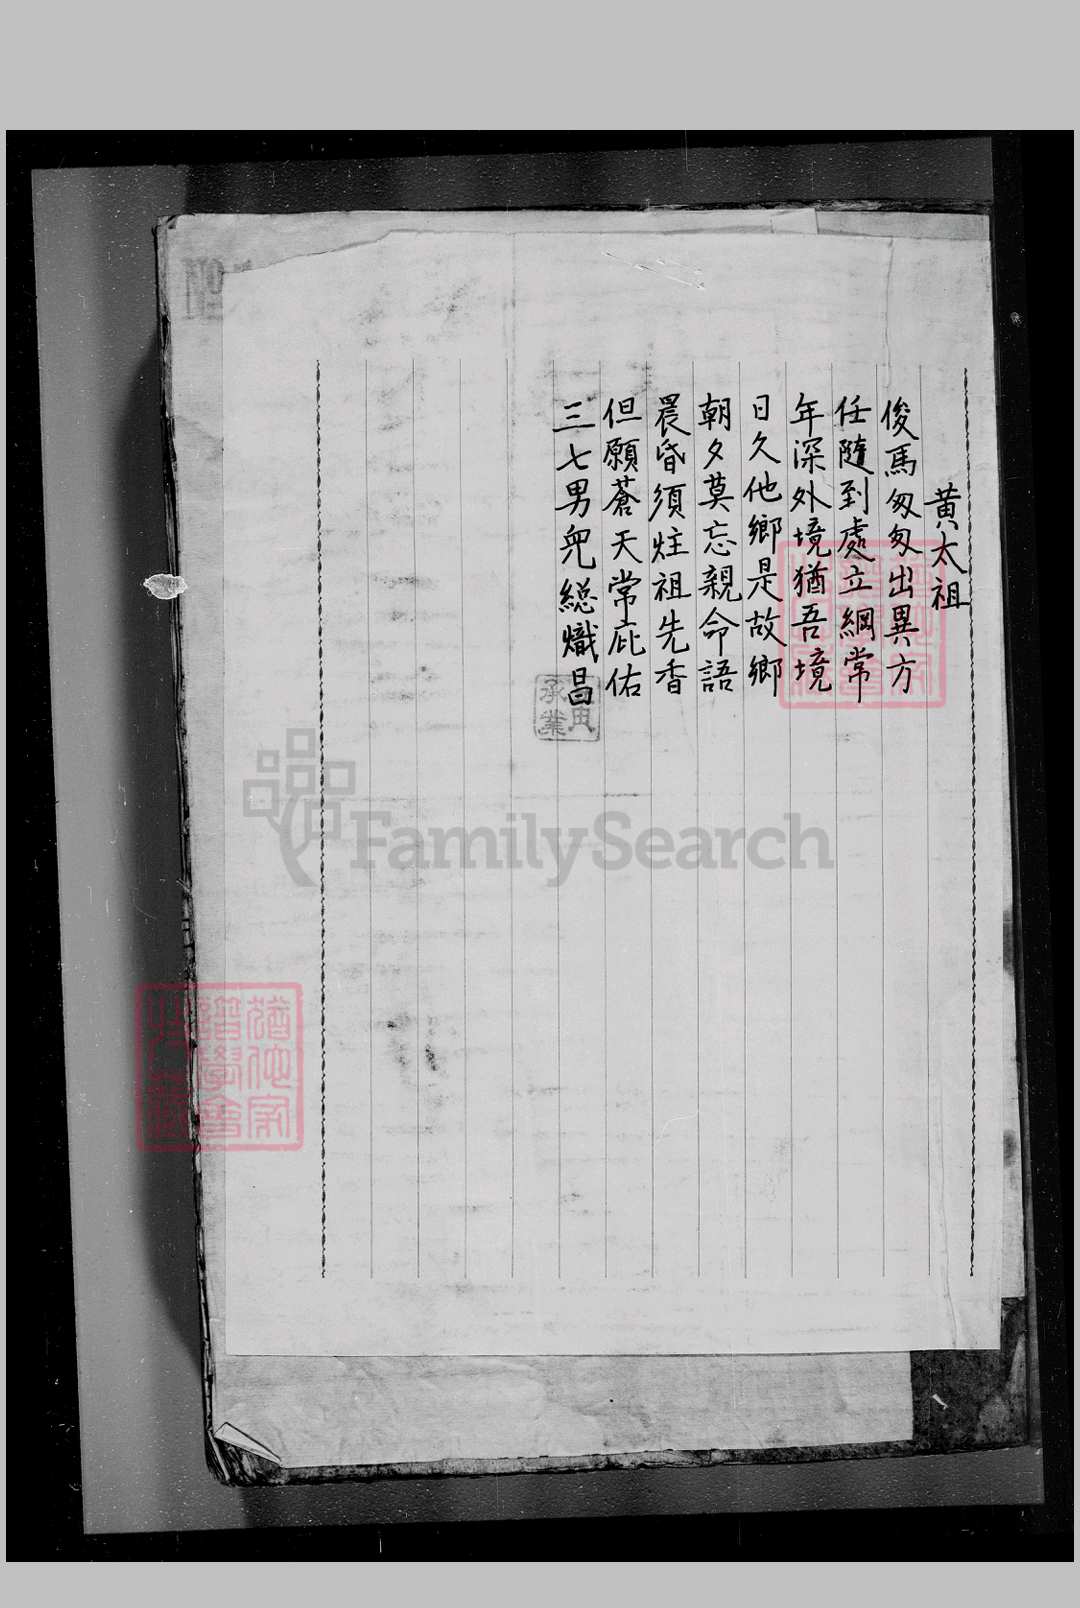 黄太祖
俊馬匆匆出異方
任隨到處立綱常
年深外境猶吾境
日久他鄉是故鄉
朝夕莫忘親命語
晨昏須炷祖先香
但願蒼天常庇佑
三七男兒総熾昌
承業
FamilySearch
譜學會